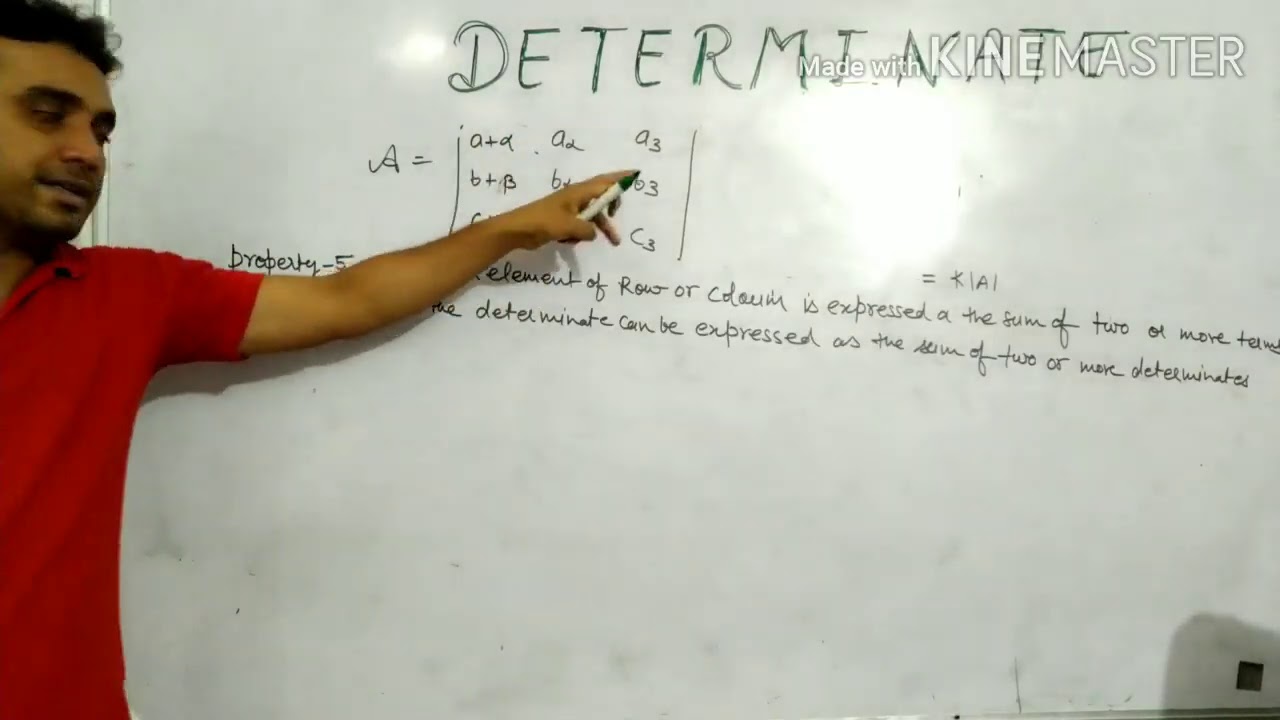 DETERMINATE
Made with KINEMASTER
A = a+α a₂ a₃
b+β 3
C₃
property-5
element of Row or Coloum is expressed a the sum of two or more terms
= K|A|
the determinate can be expressed as the sum of two or more determinates